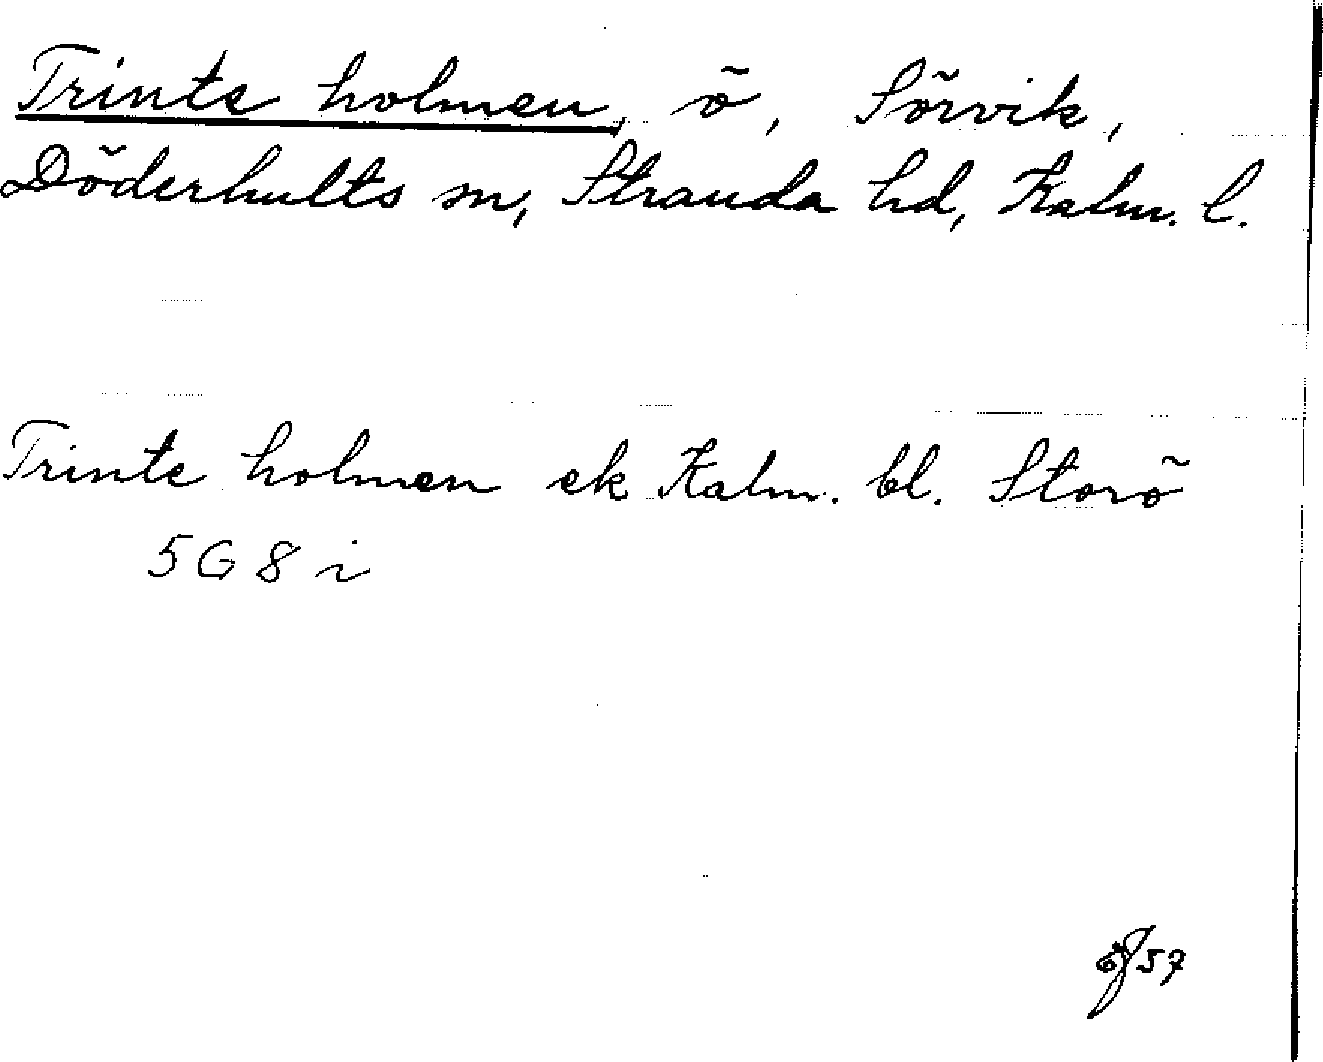 Trinte holmen, ö, Sörvik,
Döderhults sn, Stranda hd, Kalm. l.
Trinte holmen ek Kalm. bl. Storö
5 G 8 i
57